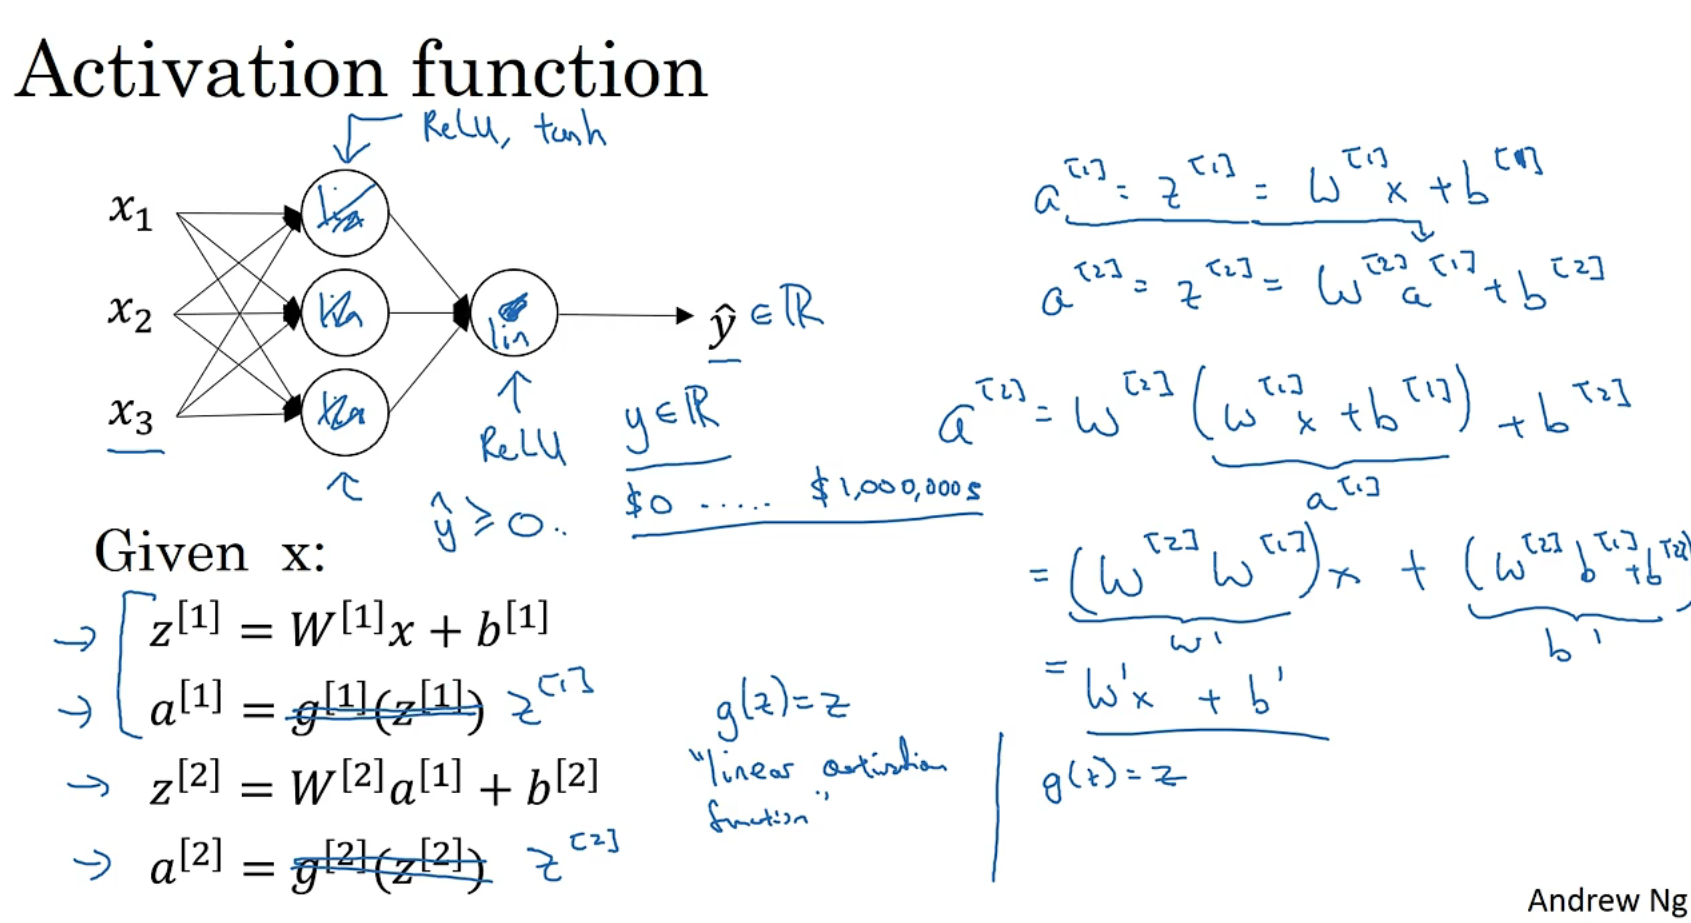 Activation function
ReLU, tanh
x₁
x₂
x₃
lin
ŷ ∈ ℝ
ReLU
y ∈ ℝ
ŷ ≥ 0..
$0 ..... $1,000,000s
Given x:
→ z^[1] = W^[1]x + b^[1]
→ a^[1] = g^[1](z^[1]) z^[1]
→ z^[2] = W^[2]a^[1] + b^[2]
→ a^[2] = g^[2](z^[2]) z^[2]
g(z) = z
"linear activation
function"
a^[1] = z^[1] = W^[1]x + b^[1]
a^[2] = z^[2] = W^[2]a^[1] + b^[2]
a^[2] = W^[2](W^[1]x + b^[1]) + b^[2]
a^[1]
= (W^[2]W^[1])x + (W^[2]b^[1] + b^[2])
W' b'
= W'x + b'
g(z) = z
Andrew Ng